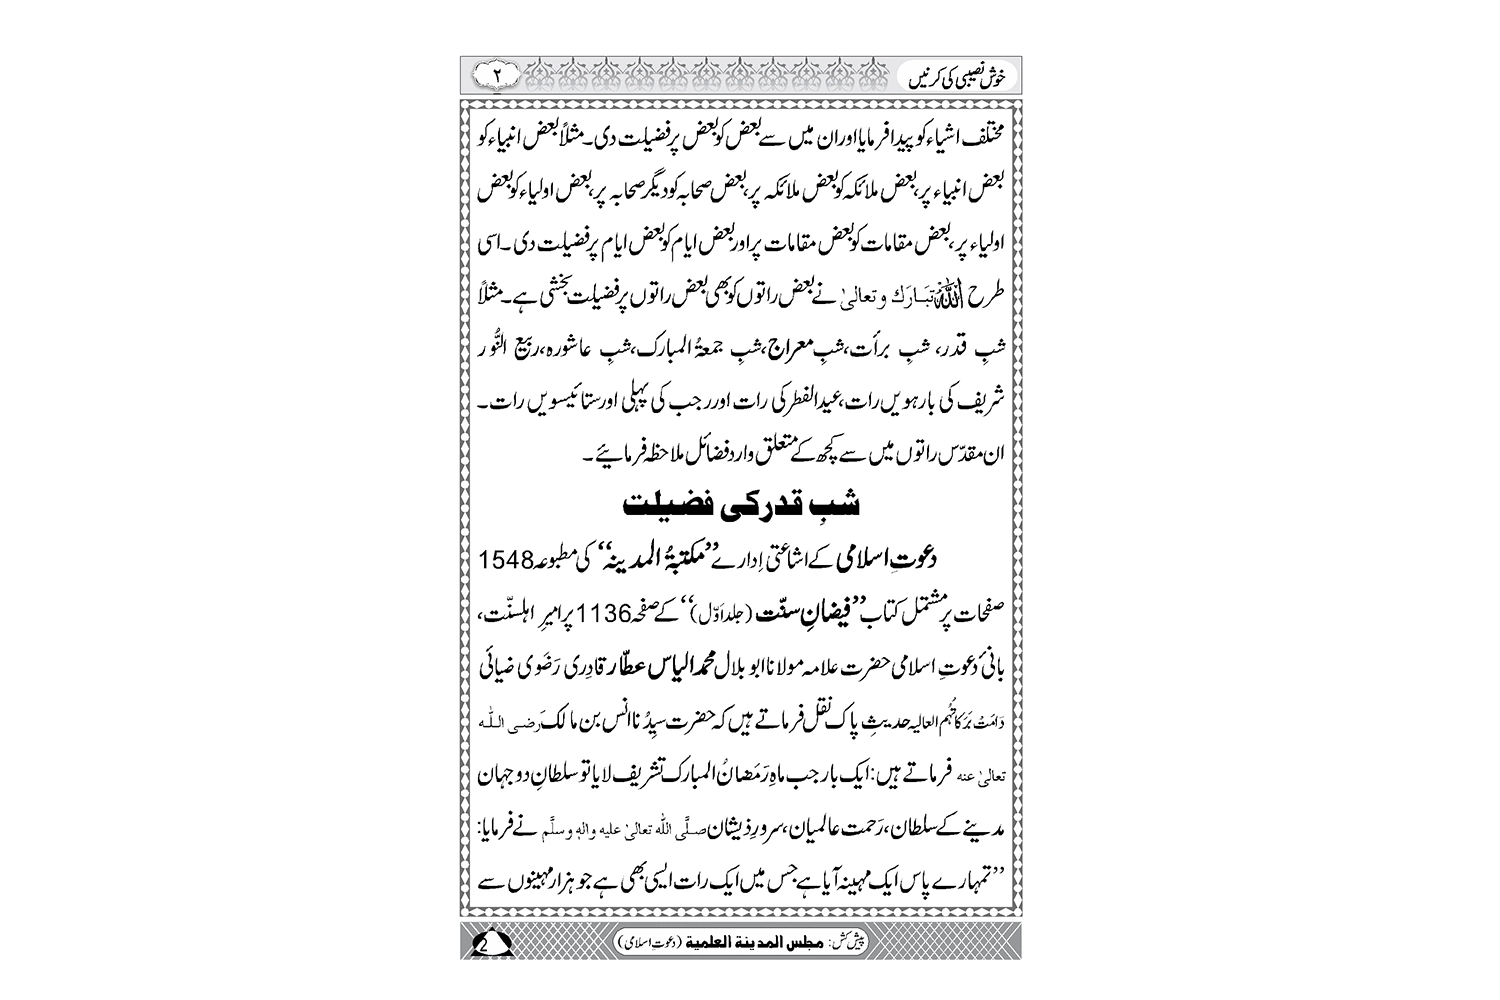 خوش نصیبی کی کرنیں ۲
مختلف اشیاء کو پیدا فرمایا اور ان میں سے بعض کو بعض پر فضیلت دی۔ مثلاً بعض انبیاء کو
بعض انبیاء پر، بعض ملائکہ کو بعض ملائکہ پر، بعض صحابہ کو دیگر صحابہ پر، بعض اولیاء کو بعض
اولیاء پر، بعض مقامات کو بعض مقامات پر اور بعض ایام کو بعض ایام پر فضیلت دی۔ اسی
طرح اللہ تَبَارَك و تعالیٰ نے بعض راتوں کو بھی بعض راتوں پر فضیلت بخشی ہے۔ مثلاً
شبِ قدر، شبِ برأت، شبِ معراج، شبِ جمعۃُ المبارک، شبِ عاشورہ، ربیع النُّور
شریف کی بارہویں رات، عید الفطر کی رات اور رجب کی پہلی اور ستائیسویں رات۔
ان مقدّس راتوں میں سے کچھ کے متعلق وارد فضائل ملاحظہ فرمائیے۔
شبِ قدر کی فضیلت
دعوتِ اسلامی کے اشاعتی اِدارے ’’مکتبۃُ المدینہ‘‘ کی مطبوعہ 1548
صفحات پر مشتمل کتاب ’’فیضانِ سنّت (جلد اَوّل)‘‘ کے صفحہ 1136 پر امیرِ اہلسنّت،
بانیٔ دعوتِ اسلامی حضرت علامہ مولانا ابو بلال محمد الیاس عطّار قادِری رَضَوی ضیائی
دَامَتْ بَرَکَاتُہُم العالیہ حدیثِ پاک نقل فرماتے ہیں کہ حضرت سیِدُنا انس بن مالک رَضی اللہ
تعالیٰ عنہ فرماتے ہیں: ایک بار جب ماہِ رَمَضانُ المبارک تشریف لایا تو سلطانِ دو جہان
مدینے کے سلطان، رَحمت عالمیان، سرورِ ذیشان صلَّی اللہ تعالیٰ علیہ والہٖ وسلَّم نے فرمایا:
’’تمہارے پاس ایک مہینہ آیا ہے جس میں ایک رات ایسی بھی ہے جو ہزار مہینوں سے
پیش کش: مجلس المدینة العلمیة (دعوتِ اسلامی) 2